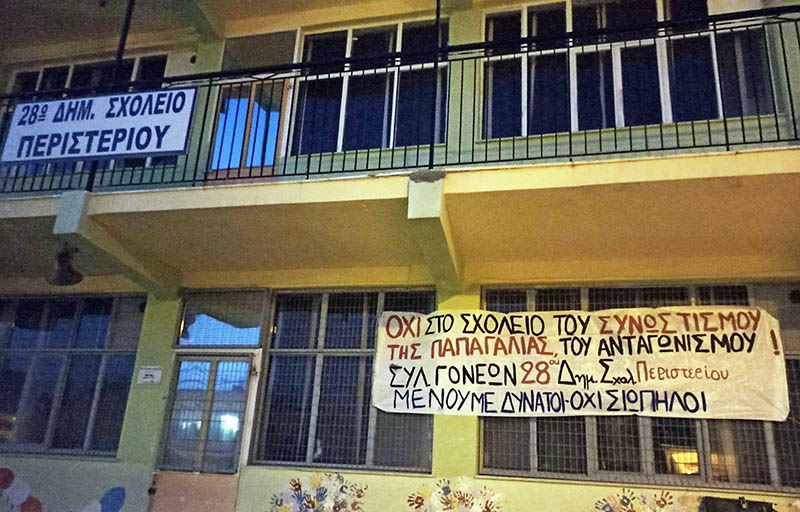 28ο ΔΗΜ. ΣΧΟΛΕΙΟ
ΠΕΡΙΣΤΕΡΙΟΥ
ΟΧΙ ΣΤΟ ΣΧΟΛΕΙΟ ΤΟΥ ΣΥΝΩΣΤΙΣΜΟΥ
ΤΗΣ ΠΑΠΑΓΑΛΙΑΣ, ΤΟΥ ΑΝΤΑΓΩΝΙΣΜΟΥ !
ΣΥΛ. ΓΟΝΕΩΝ 28ου Δημ. Σχολ. Περιστερίου
ΜΕΝΟΥΜΕ ΔΥΝΑΤΟΙ-ΟΧΙ ΣΙΩΠΗΛΟΙ